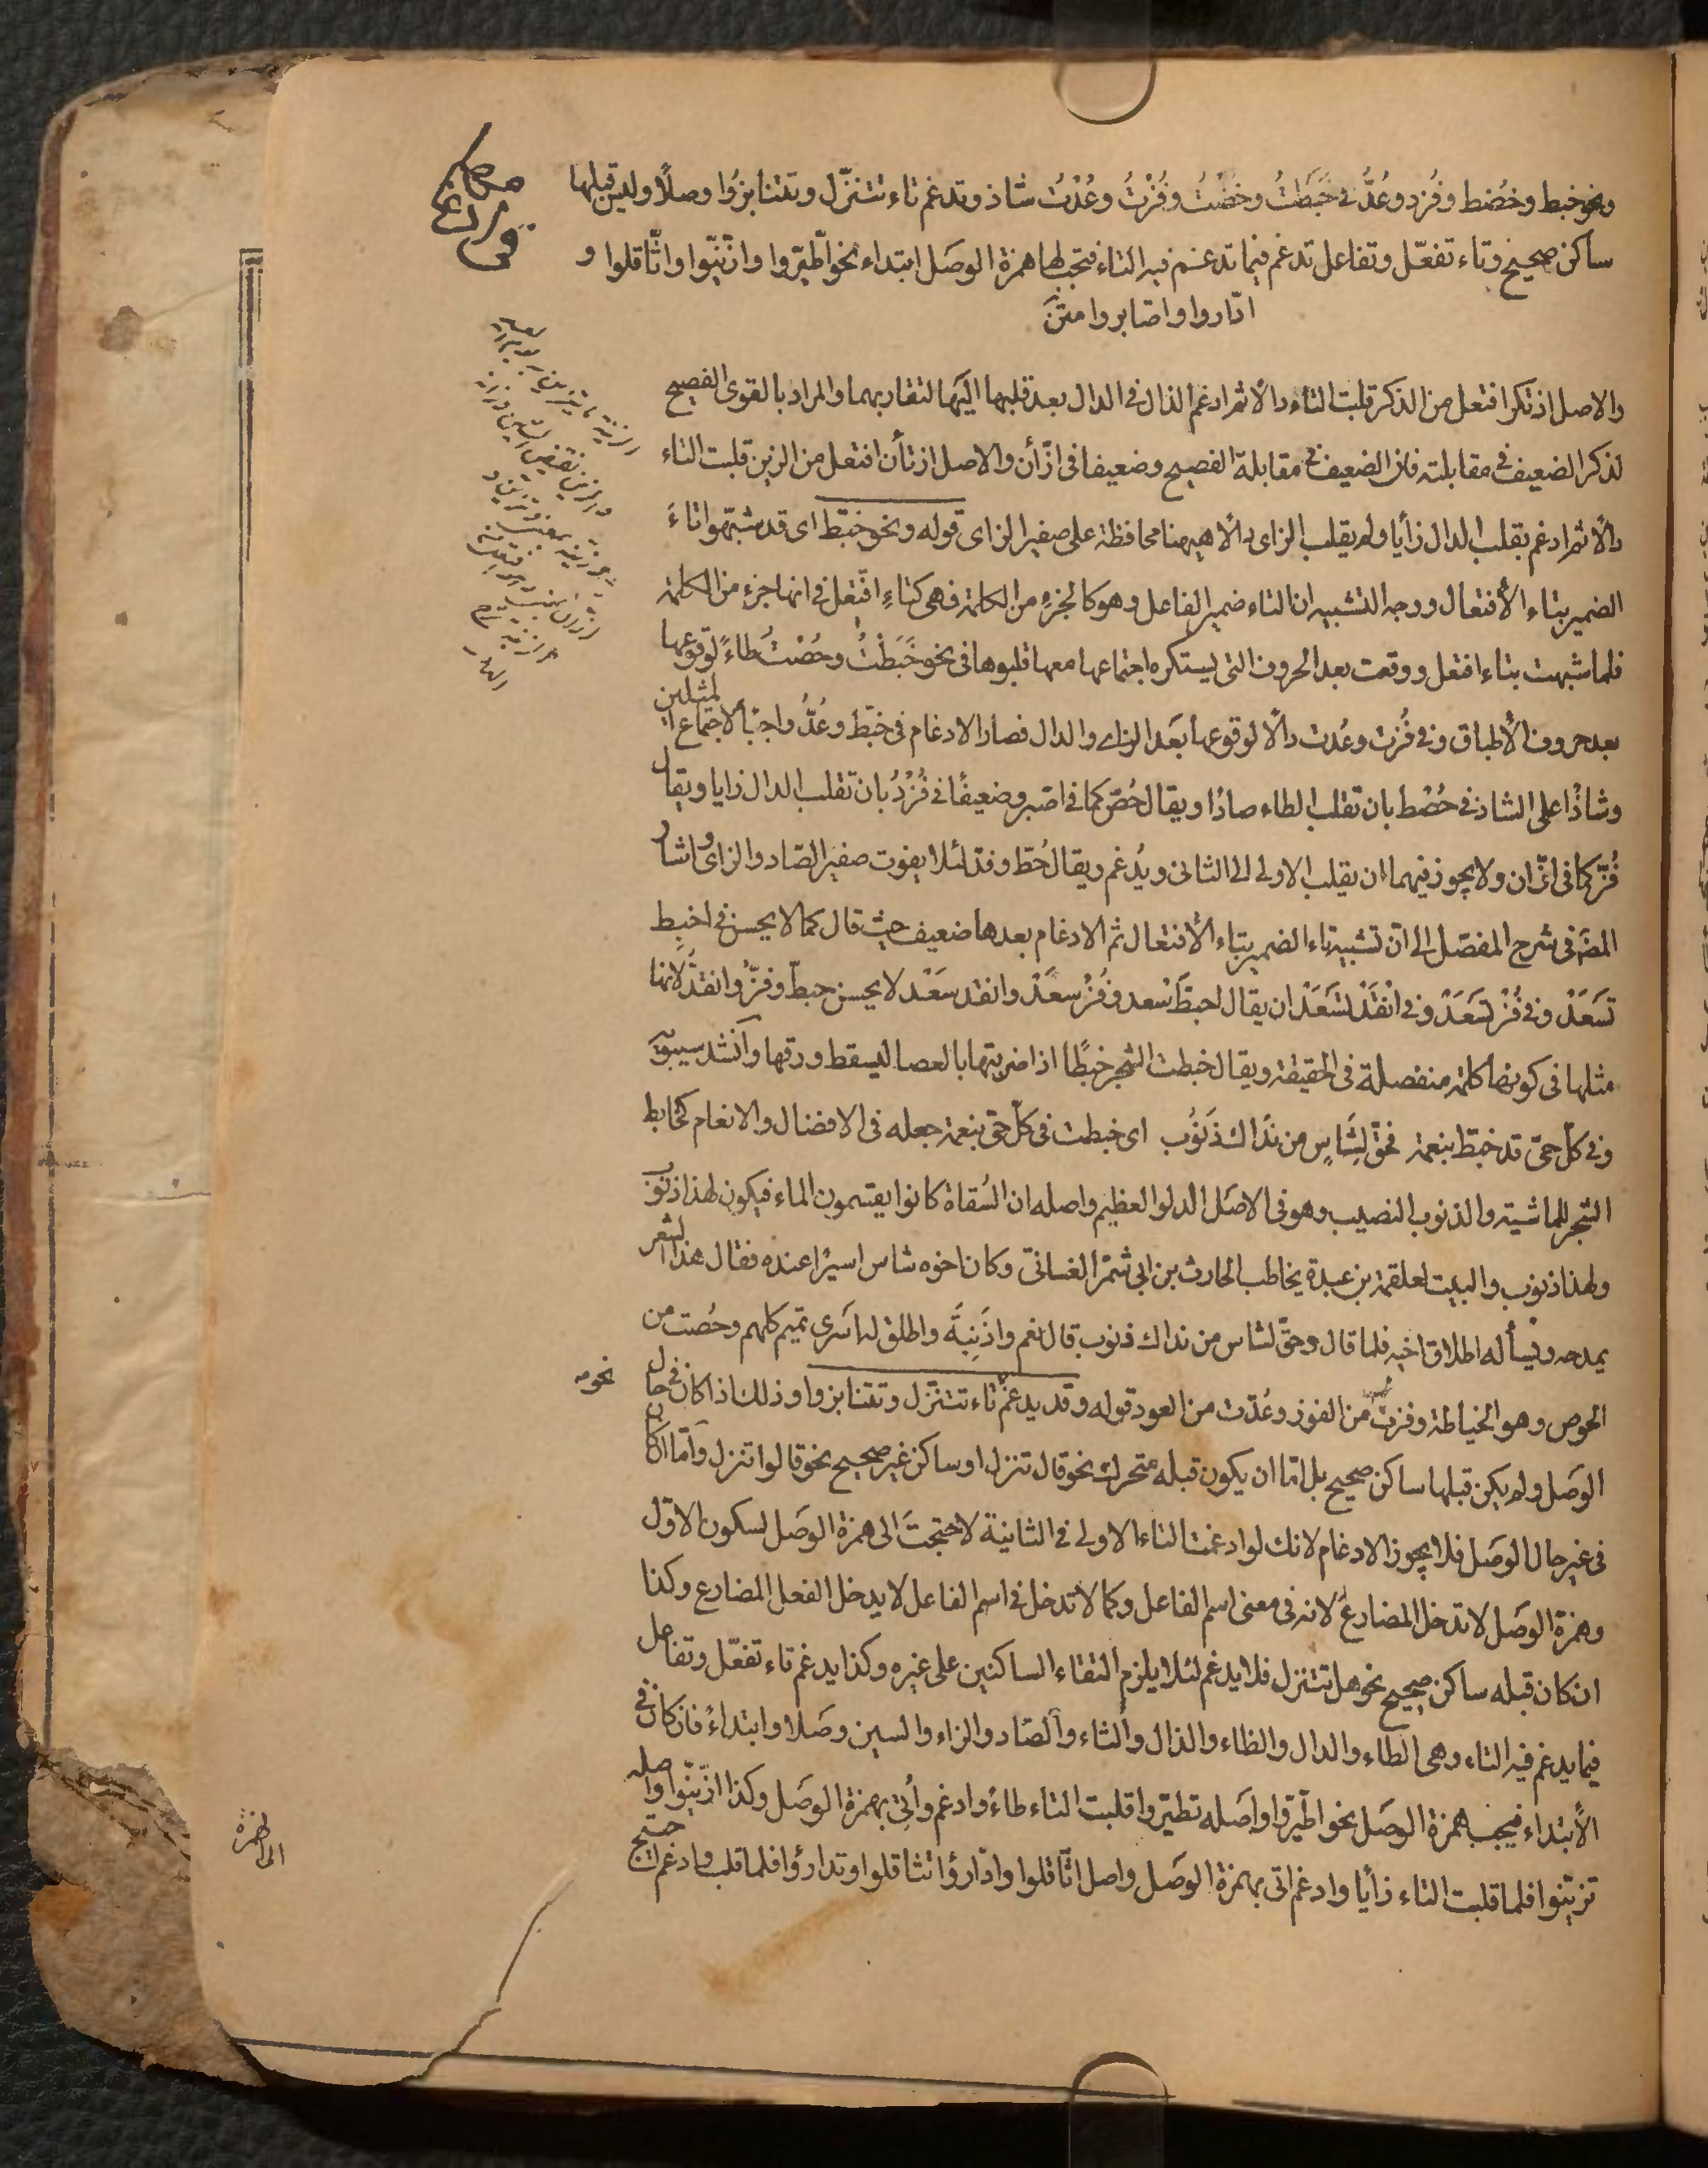 ونحو خبط وحُصط وفُزد وعُدُّ فى خَبَطتُ وحُصْتُ وفُزْتُ وعُدْتُ شاذ وتدغم تاء تتنزّل وتتنابزُوا وصلًا وليس قبلها
ساكن صحيح وتاء تفعّل وتفاعل تدغم فيما تدغم فيه التاء فتجب لها همزة الوصل ابتداء نحو اطّيّروا وازّيّنوا واثّاقلوا و
ادّاروا واصّابروا متن
والاصل اذتكر افتعل من الذكر قلبت التاء دالا ثم ادغم الذال فى الدال بعد قلبها اليها لتقاربهما والمراد بالقوى الفصيح
لذكر الضعيف فى مقابلته فان الضعيف فى مقابلة الفصيح وضعيفا فى ازّأن والاصل ازتأن افتعل من الزين قلبت التاء
دالًا ثم ادغم بقلب الدال زأيا ولم يقلب الزاى دالًا ههنا محافظة على صفير الزاى قوله ونحو خبّط اى قد شبّهوا تاءَ
الضمير بتاء الأفتعال ووجه التشبيه ان التاء ضمير الفاعل وهو كالجزء من الكلمة فهى كتاءِ افتعل فى انها جزء من الكلمة
فلما شبهت بتاء افتعل ووقعت بعد الحروف التى يستكره اجتماعها معها قلبوها فى نحو خَبَطْتُ وحُصْتُ طاءً لوقوعها
بعد حروف الأطباق وفى فُزت وعُدت دالًا لوقوعها بعَد الزاء والدال فصار الادغام فى خبّط وعُدُّ واجبًا لاجتماع المثلين
وشاذًا على الشاذ فى حُصْط بان تقلب الطاء صادًا ويقال حُصّ كما فى اصّبر وضعيفًا فى فُزْدُ بان تقلب الدال زايا ويقال
فُزّ كما فى ازّان ولا يجوز فيهما ان يقلب الاولى الى الثانى ويُدغم ويقال حُطّ وفدّ لئلا يفوت صفير الصّاد والزاى واشار
المصَ فى شرح المفصّل الى انّ تشبيه تاء الضمير بتاء الأفتعال ثم الادغام بعدها ضعيف حيث قال كما لا يحسن فى اخبِط
تسَعَدْ وفى فُزْ تسَعَدْ وفى انْقَدْ تسَعَدْ ان يقال اخبطّ سْعد وفُزْ سعَدْ وانقد سَعَدْ لا يحسن خبطّ وفزّ وانقدُّ لانها
مثلها فى كونها كلمة منفصلة فى الحقيقة ويقال خبطت الشجر خبطًا اذا ضربتها بالعصا ليسقط ورقها وأنشد سيبويه
وفى كلّ حىّ قد خبّط بنعمة فحُقّ لشَاسٍ من نَداك ذَنوُب اى خبطت فى كلّ حىّ بنعمة جعله فى الافضال والانعام كخابط
الشجر للماشية والذنوب النصيب وهو فى الاصَل الدلو العظيم واصله ان السُقاة كانوا يقتسمون الماء فيكون لهذا ذنوُب
ولهذا ذنوب والبيت لعلقمة بن عبدة يخاطب الحارث بن ابى شمر الغسانىّ وكان اخوه شاس اسيرًا عنده فقال هذا الشعر
يمدحه ويسأله اطلاق اخيه فلما قال وحقّ لشاس من نداك ذنوب قال نعم واذنِبَةَ واطلق له اسَرى تميم كلهم وحُصت من
الحوص وهو الخياطة وفزت من الفوز وعُدت من العود قوله وقد يدغم تاء تتنزّل وتتنابزوا وذلك اذا كان فى حال
نحو
الوصَل ولم يكن قبلها ساكن صحيح بل امّا ان يكون قبله متحرك نحو قال تنزل او ساكن غير صحيح نحو قالوا تنزل وأمّا ان كان
فى غير حال الوصَل فلا يجوز الادغام لانك لو ادغمت التاء الاولى فى الثانية لاحتجتَ الى همزة الوصَل لسكون الاوّل
وهمزة الوصَل لا تدخل المضارعَ لانه فى معنى اسم الفاعل وكما لا تدخل فى اسم الفاعل لا يدخل الفعل المضارع وكذا
ان كان قبله ساكن صحيح نحو هل تتنزل فلا يدغم لئلا يلزم التقاء الساكنين على غيره وكذا يدغم تاء تفعّل وتفاعل
فيما يدغم فيه التاء وهى الطاء والدال والظاء والذال والثاء والصّاد والزاء والسين وصَلا وابتداءً فان كان فى
الأبتداء فيجب همزة الوصَل نحو اطّيّروا واصَله تطيّروا قلبت التاء طاءً وادغم وأُتى بهمزة الوصَل وكذا ازّيّنوا واصله
تزيّنوا فلما قلبت التاء زأيا وادغم اتى بهمزة الوصَل واصل اثّاقلوا وادّارؤا تثاقلوا وتدارؤا فلما قلب وادغم احتيج
الى الهمزة